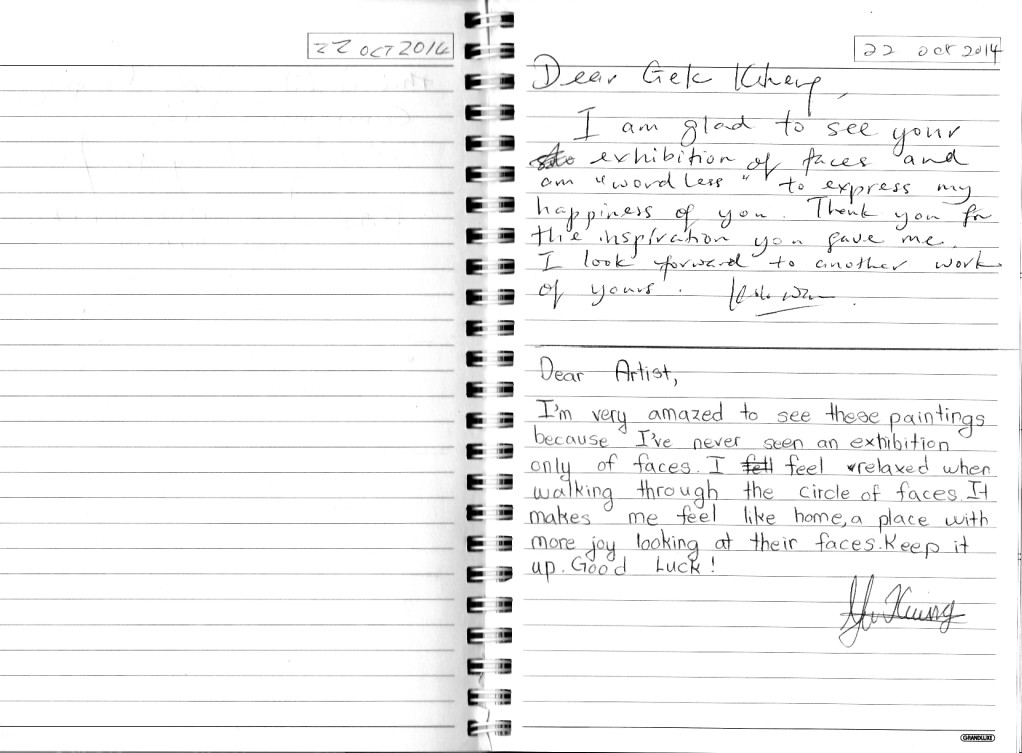 22 OCT 2014
22 oct 2014
Dear Gek Kheng,
I am glad to see your
exhibition of faces and
am "wordless" to express my
happiness of you. Thank you for
the inspiration you gave me.
I look forward to another work
of yours.
Dear Artist,
I'm very amazed to see these paintings
because I've never seen an exhibition
only of faces. I fell feel relaxed when
walking through the circle of faces. It
makes me feel like home, a place with
more joy looking at their faces. Keep it
up. Good Luck!
GRANDLUXE